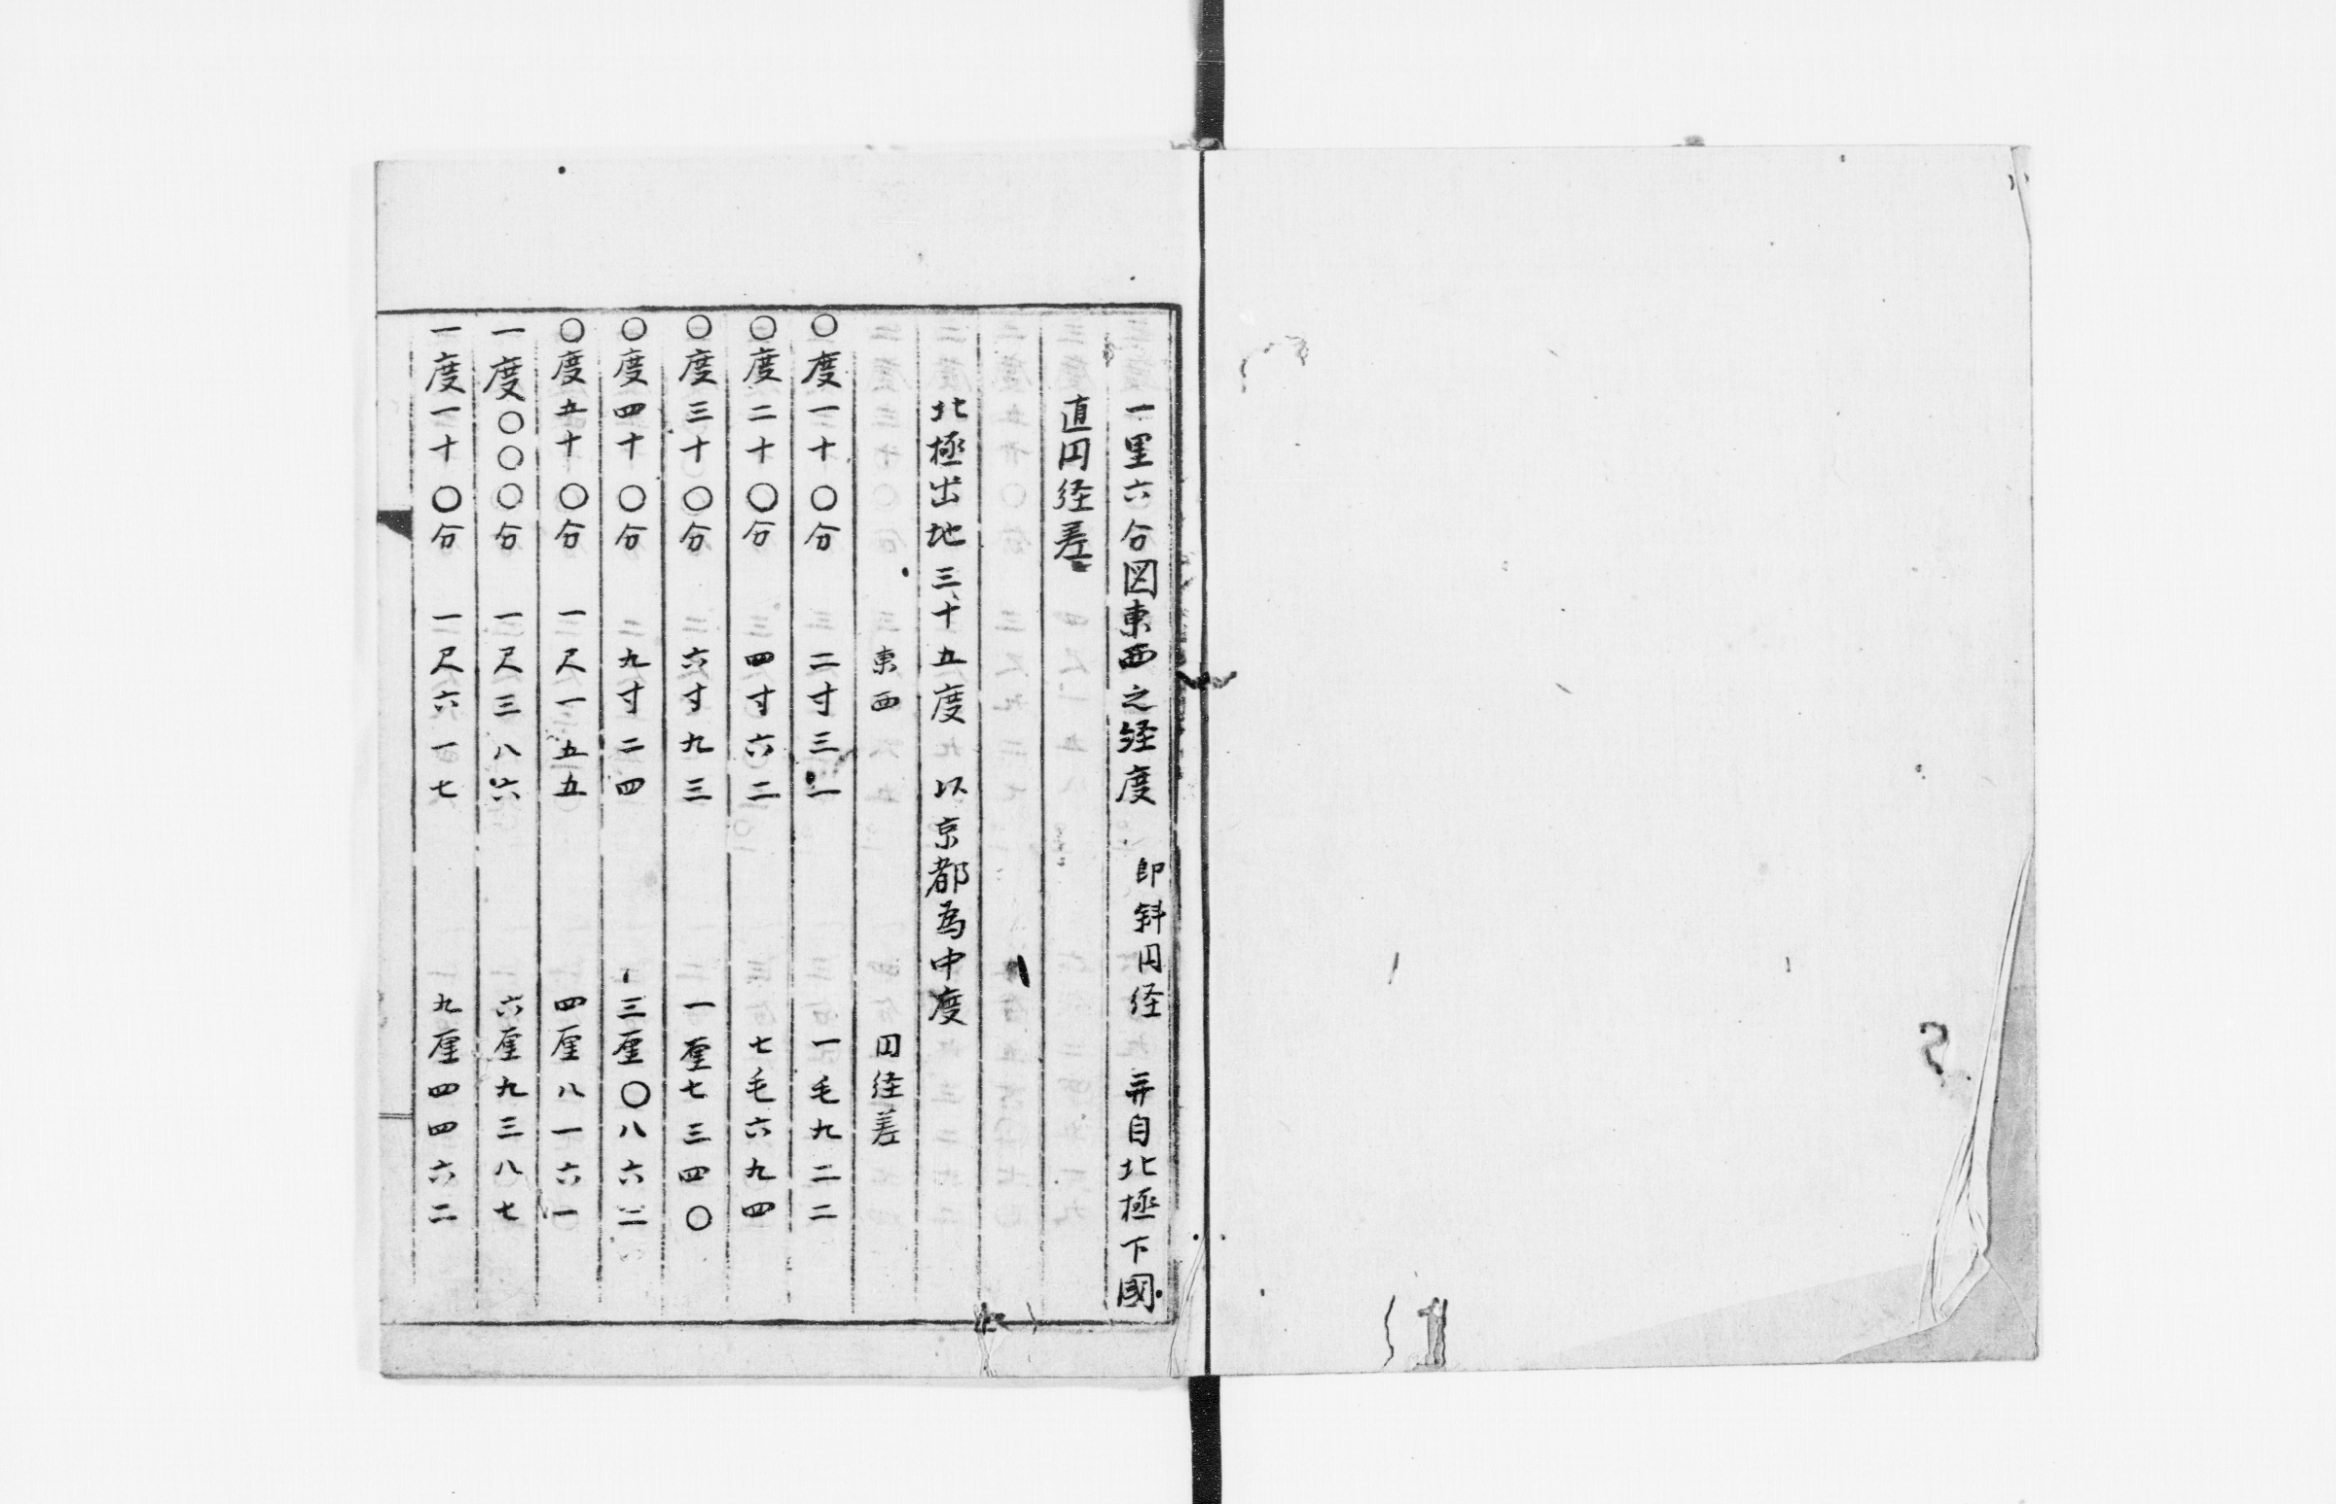 一里六分図東西之経度 即斜円経 並自北極下國
直円経差
北極出地三十五度 以京都為中度
東西 円経差
〇度一十〇分 二寸三一 一毛九二二
〇度二十〇分 四寸六二 七毛六九四
〇度三十〇分 六寸九三 一厘七三四〇
〇度四十〇分 九寸二四 三厘〇八六二
〇度五十〇分 一尺一五五 四厘八一六一
一度〇〇〇分 一尺三八六 六厘九三八七
一度一十〇分 一尺六一七 九厘四四六二